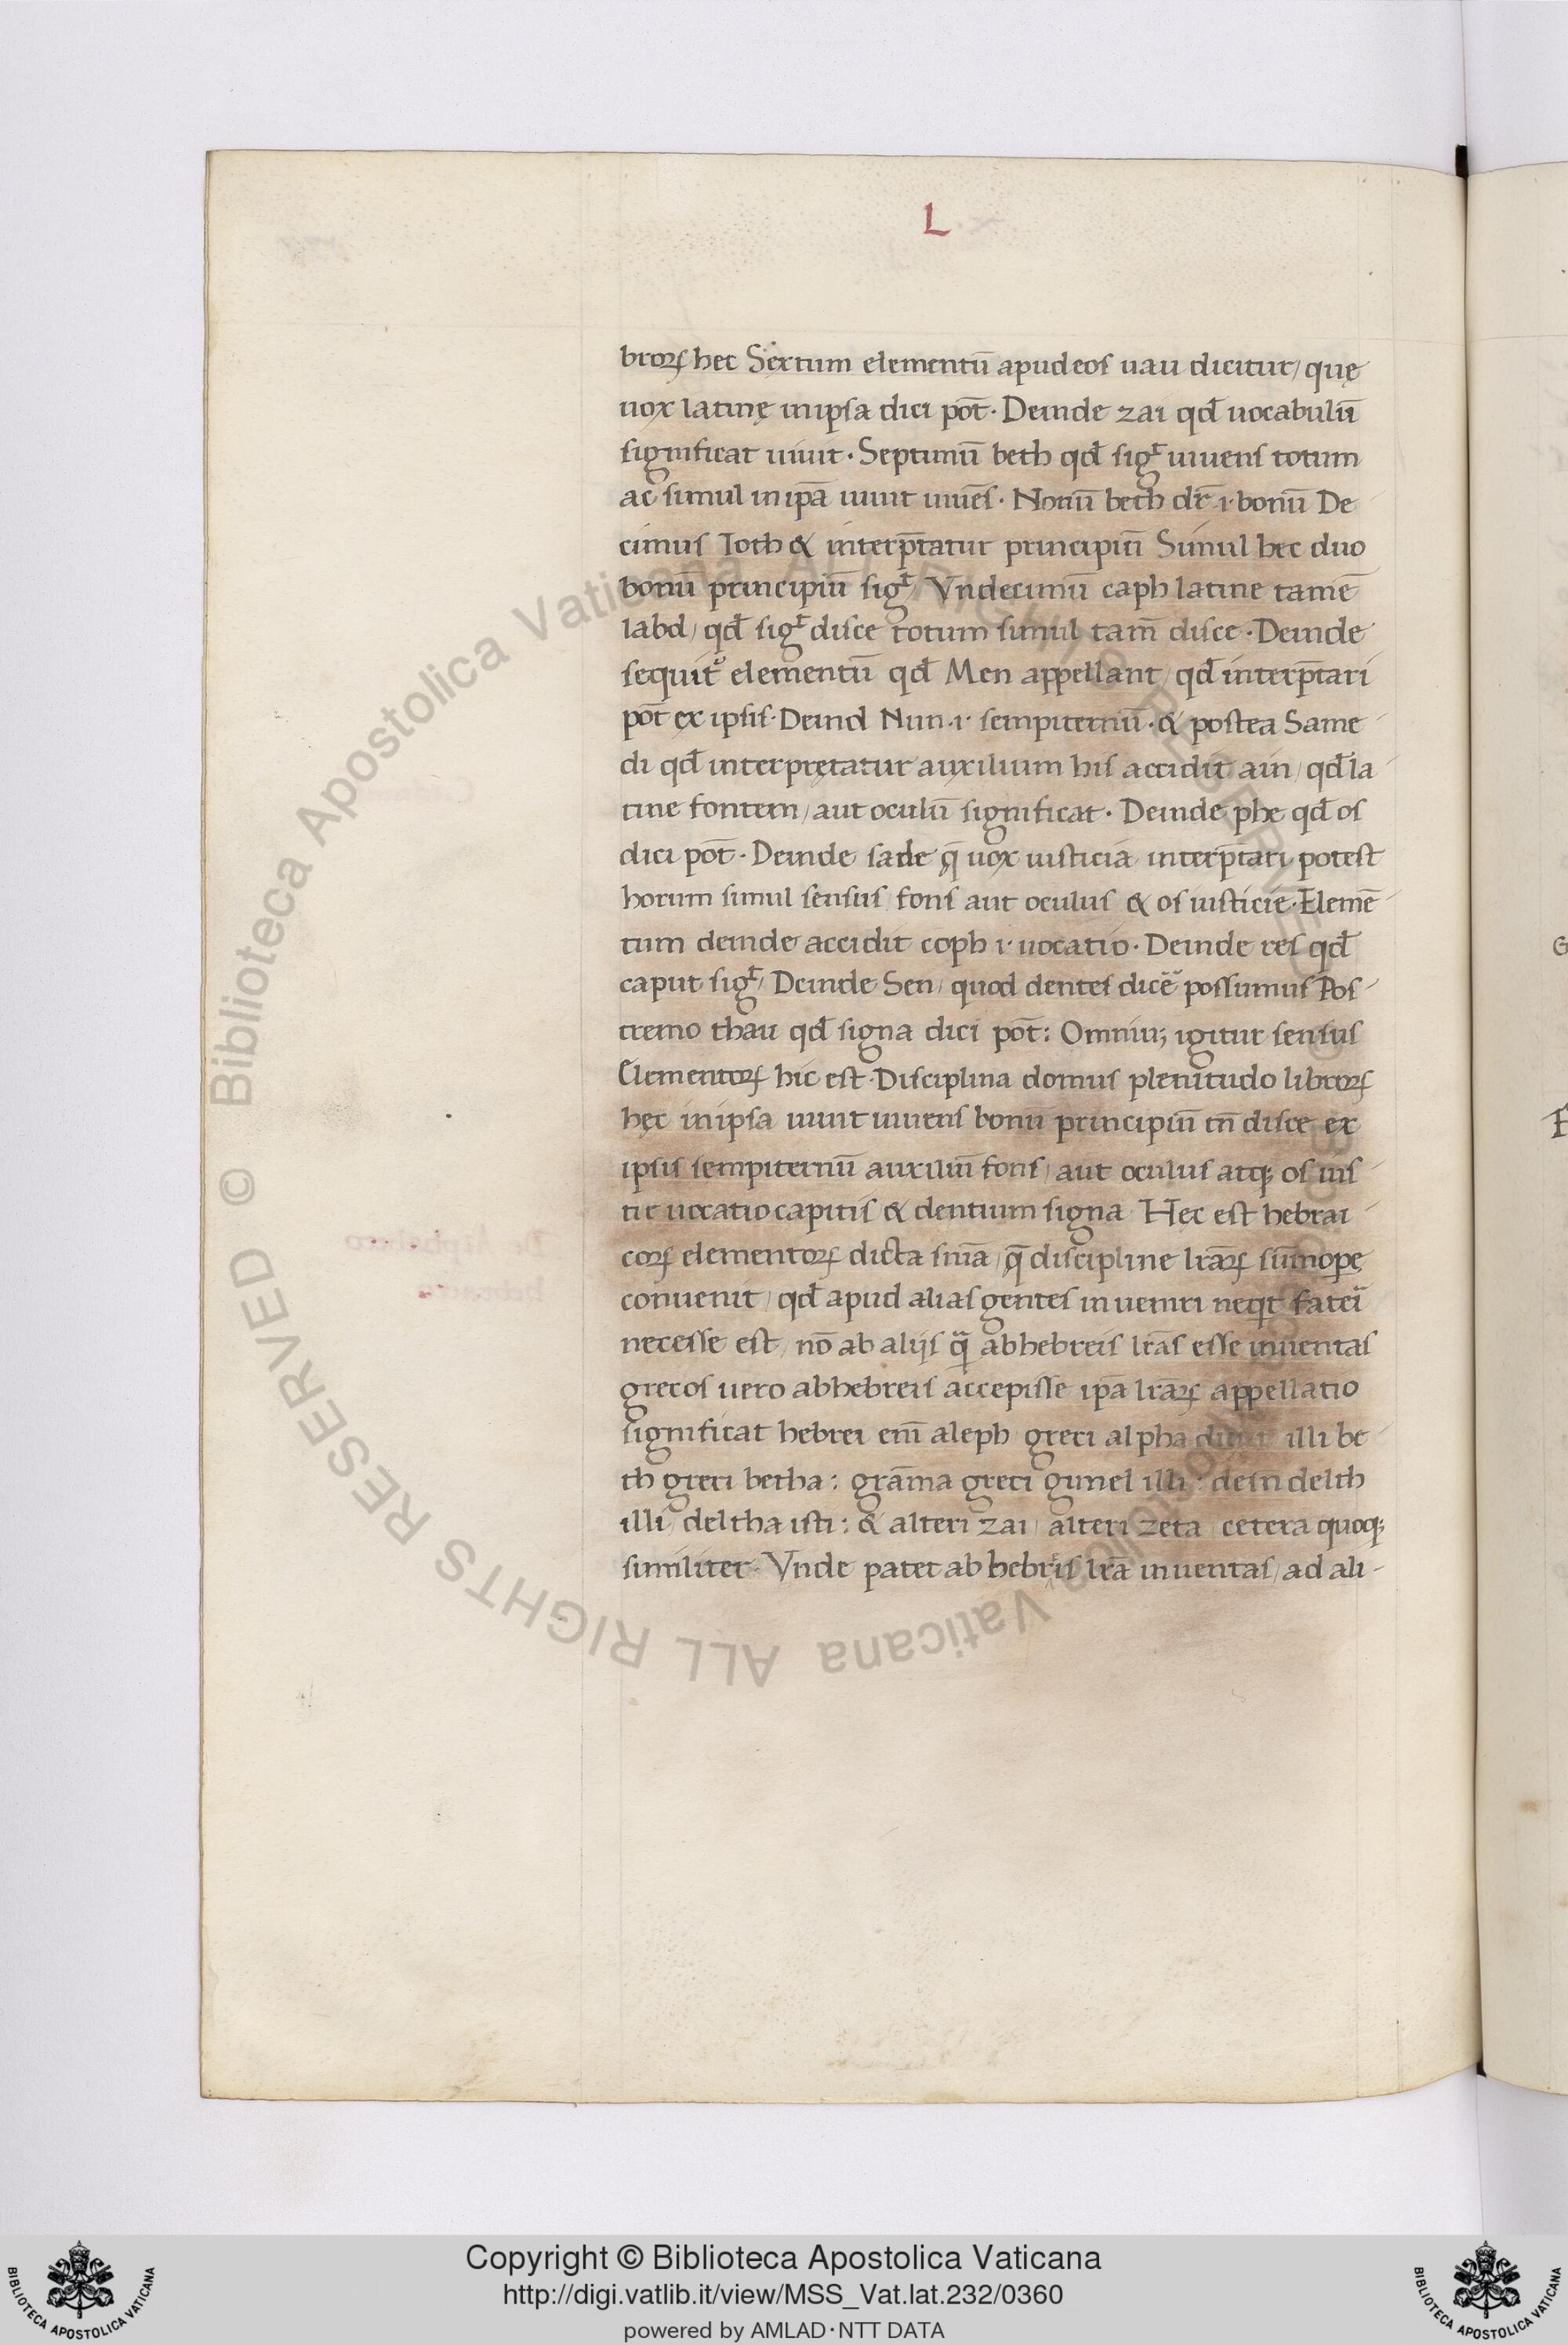 L
broꝝ hec Sextum elementū apud eos uau dicitur/ quę
uox latinę in ipsa dici pōt · Deinde zai qđ uocabulū
significat uiuit · Septimū beth qđ sigͭ uiuens totum
ac simul in ipā uiuit uiuēs · Nonū beth dr̄ ·i· bonū De
cimus Ioth & interp̄tatur principiū Simul hec duo
bonū principiū sigͭ/ Vndecimū caph latine tamē
labd/ qđ sigͭ disce totum simul tam̄ disce · Deinde
sequit᷑ elementū qđ Men appellant/ qđ interp̄tari
pōt ex ipsis · Deind Nun ·i· sempiternū · & postea Same
di qđ interpretatur auxilium his accidit ain/ qđ la
tine fontem/ aut oculū significat · Deinde phe qđ os
dici pōt · Deinde sade q̄ uox iusticia interp̄tari potest
horum simul sensus fons aut oculus & os iusticie · Elemē
tum deinde accidit coph ·i· uocatio · Deinde res qđ
caput sigͭ/ Deinde Sen/ quod dentes dicē possumus Pos
tremo thau qđ signa dici pōt: Omniu; igitur sensus
Elementoꝝ hic est · Disciplina domus plenitudo libroꝝ
hęc in ipsa uiuit uiuens bonū principiū tn̄ disce ex
ipsis sempiternū auxiliū fons/ aut oculus atq; os ius
tit uocatio capitis & dentium signa Hec est hebrai
coꝝ elementoꝝ dicta sn̄ia/ q̄ discipline lr̄aꝝ sūmope
conuenit/ qđ apud alias gentes inueniri neqt fatei
necesse est/ nō ab alijs q̄ ab hebreis lr̄as esse inuentas
grecos uero ab hebreis accepisse ipā lr̄aꝝ appellatio
significat hebrei em̄ aleph greci alpha illi be
th greci betha: grāma greci gimel illi: dein̄ delth
illi/ deltha isti: & alteri zai/ alteri zeta/ cetera quoq;
similiter · Vnde patet ab hebreis lr̄a inuentas/ ad ali-
Copyright © Biblioteca Apostolica Vaticana
http://digi.vatlib.it/view/MSS_Vat.lat.232/0360
powered by AMLAD·NTT DATA
BIBLIOTECA APOSTOLICA VATICANA
BIBLIOTECA APOSTOLICA VATICANA